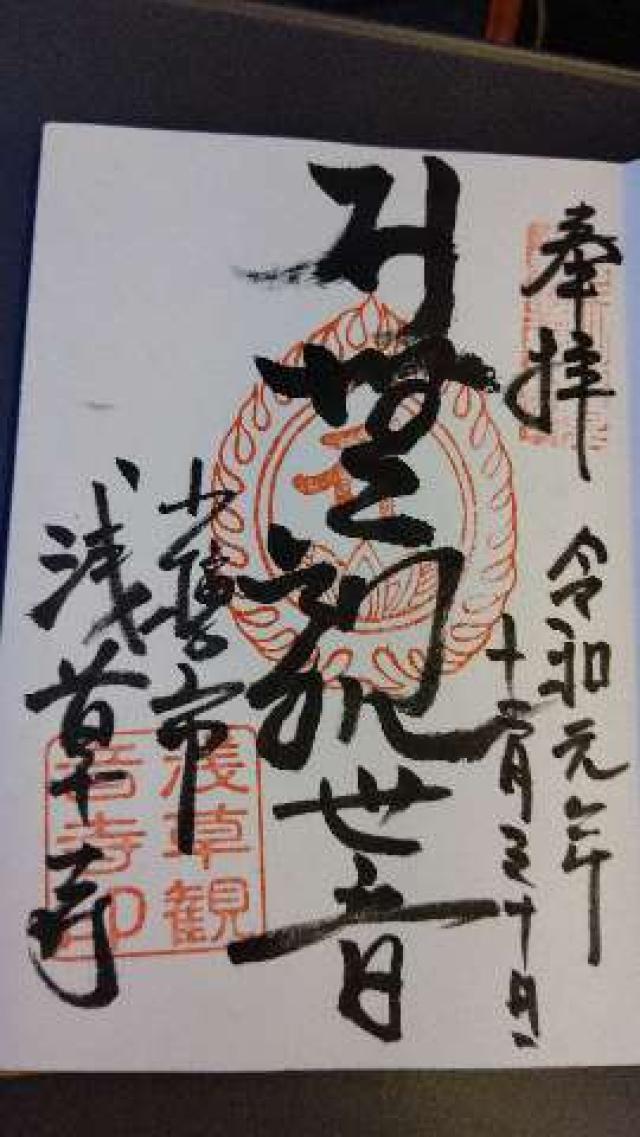 奉拝
令和元年
十二月三十日
聖観世音
市
浅草寺
浅草観
音寺印